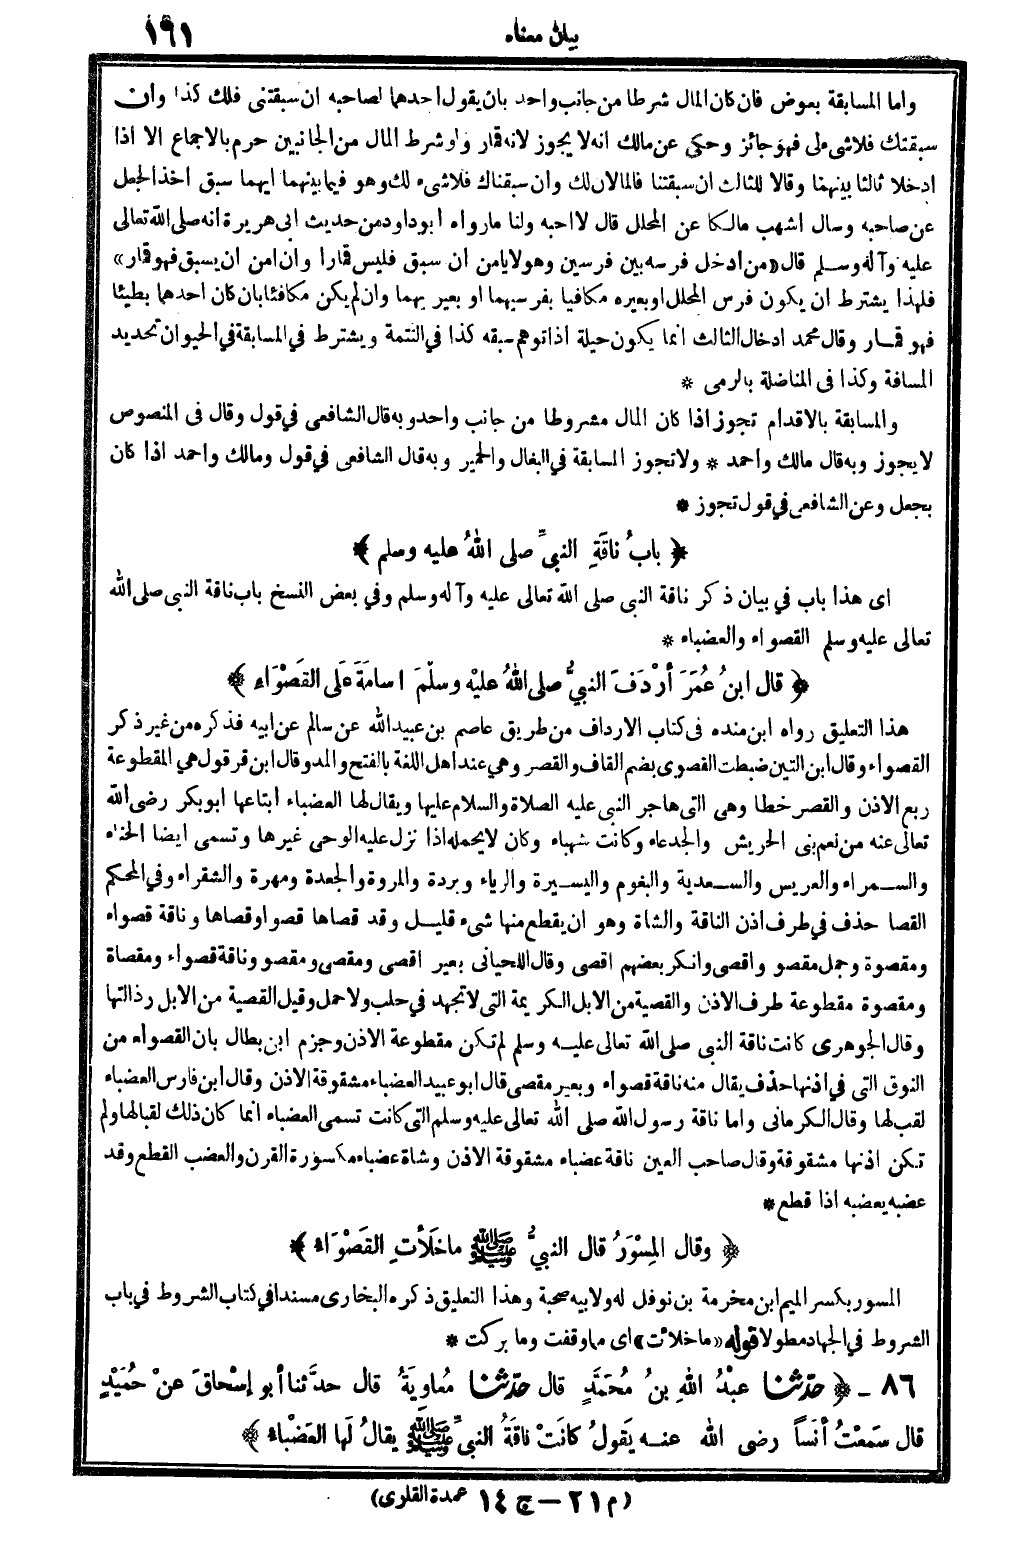 بيان معناه ١٦١
واما المسابقة بعوض فان كان المال شرطا من جانب واحد بان يقول احدهما لصاحبه ان سبقتنى فلك كذا وان
سبقتك فلاشىء لى فهو جائز وحكى عن مالك انه لا يجوز لانه قمار ولو شرط المال من الجانبين حرم بالاجماع الا اذا
ادخلا ثالثا بينهما وقالا للثالث ان سبقتنا فالمالان لك وان سبقناك فلاشىء لك وهو فيما بينهما ايهما سبق اخذ الجعل
عن صاحبه وسال اشهب مالكا عن المحلل قال لا احبه ولنا ما رواه أبو داود من حديث ابى هريرة انه صلى الله تعالى
عليه وآله وسلم قال «من أدخل فرسه بين فرسين وهو لا يامن ان سبق فليس قمارا وان امن ان يسبق فهو قمار»
فلهذا يشترط ان يكون فرس المحلل او بعيره مكافيا بفرسيهما او بعيريهما وان لم يكن مكافئا بان كان احدهما بطيئا
فهو قمار وقال محمد ادخال الثالث انما يكون حيلة اذا توهم سبقه كذا في التتمة ويشترط في المسابقة في الحيوان تحديد
المسافة وكذا فى المناضلة بالرمى *
والمسابقة بالاقدام تجوز اذا كان المال مشروطا من جانب واحد وبه قال الشافعى في قول وقال فى المنصوص
لا يجوز وبه قال مالك واحمد * ولا تجوز المسابقة في البغال والحمير وبه قال الشافعى في قول ومالك واحمد اذا كان
بجعل وعن الشافعى في قول تجوز *
﴿ بابُ ناقَةِ النبيِّ صلى اللهُ عليه وسلم ﴾
اى هذا باب في بيان ذكر ناقة النبى صلى الله تعالى عليه وآله وسلم وفي بعض النسخ باب ناقة النبى صلى الله
تعالى عليه وسلم القصواء والعضباء *
﴿ قال ابنُ عُمَرَ أرْدَفَ النبيُّ صلى اللهُ عليْه وسلّمَ اسامَةَ عَلَى القَصْوَاءِ ﴾
هذا التعليق رواه ابن منده فى كتاب الارداف من طريق عاصم بن عبيد الله عن سالم عن ابيه فذكره من غير ذكر
القصواء وقال ابن التين ضبطت القصوى بضم القاف والقصر وهي عند اهل اللغة بالفتح والمد وقال ابن قرقول هي المقطوعة
ربع الاذن والقصر خطا وهى التى هاجر النبى عليه الصلاة والسلام عليها ويقال لها العضباء ابتاعها ابو بكر رضى الله
تعالى عنه من نعم بنى الحريش والجدعاء وكانت شهباء وكان لا يحمله اذا نزل عليه الوحى غيرها وتسمى ايضا الحناء
والسمراء والعريس والسعدية والبغوم واليسيرة والرياء وبردة والمروة والجعدة ومهرة والشقراء وفي المحكم
القصا حذف في طرف اذن الناقة والشاة وهو ان يقطع منها شىء قليل وقد قصاها قصوا وقصاها وناقة قصواء
ومقصوة وجمل مقصو واقصى وانكر بعضهم اقصى وقال اللحيانى بعير اقصى ومقصى ومقصو وناقة قصواء ومقصاة
ومقصوة مقطوعة طرف الاذن والقصية من الابل الكريمة التى لا تجهد في حلب ولا حمل وقيل القصية من الابل رذالتها
وقال الجوهرى كانت ناقة النبى صلى الله تعالى عليه وسلم لم تكن مقطوعة الاذن وجزم ابن بطال بان القصواء من
النوق التى في اذنها حذف يقال منه ناقة قصواء وبعير مقصى قال ابو عبيد العضباء مشقوقة الاذن وقال ابن فارس العضباء
لقب لها وقال الكرمانى واما ناقة رسول الله صلى الله تعالى عليه وسلم التى كانت تسمى العضباء انما كان ذلك لقبا لها ولم
تكن اذنها مشقوقة وقال صاحب العين ناقة عضباء مشقوقة الاذن وشاة عضباء مكسورة القرن والعضب القطع وقد
عضبه يعضبه اذا قطع *
﴿ وقال المِسْوَرُ قال النبيُّ ﷺ ماخَلَأتِ القَصْوَاءُ ﴾
المسور بكسر الميم ابن مخرمة بن نوفل له ولابيه صحبة وهذا التعليق ذكره البخارى مسندا في كتاب الشروط في باب
الشروط في الجهاد مطولا قوله «ما خلات» اى ما وقفت وما بركت *
٨٦ - ﴿ حدّثنا عبْدُ اللهِ بنُ مُحَمَّدٍ قال حدّثنا مُعاوِيَةُ قال حدثنا أبو إسْحاقَ عنْ حُمَيْدٍ
قال سَمعْتُ أنَساً رضى الله عنه يَقولُ كانَتْ ناقَةُ النبيِّ ﷺ يقالُ لَها العَضْباءُ ﴾
(م ٢١ - ج ١٤ عمدة القارى)